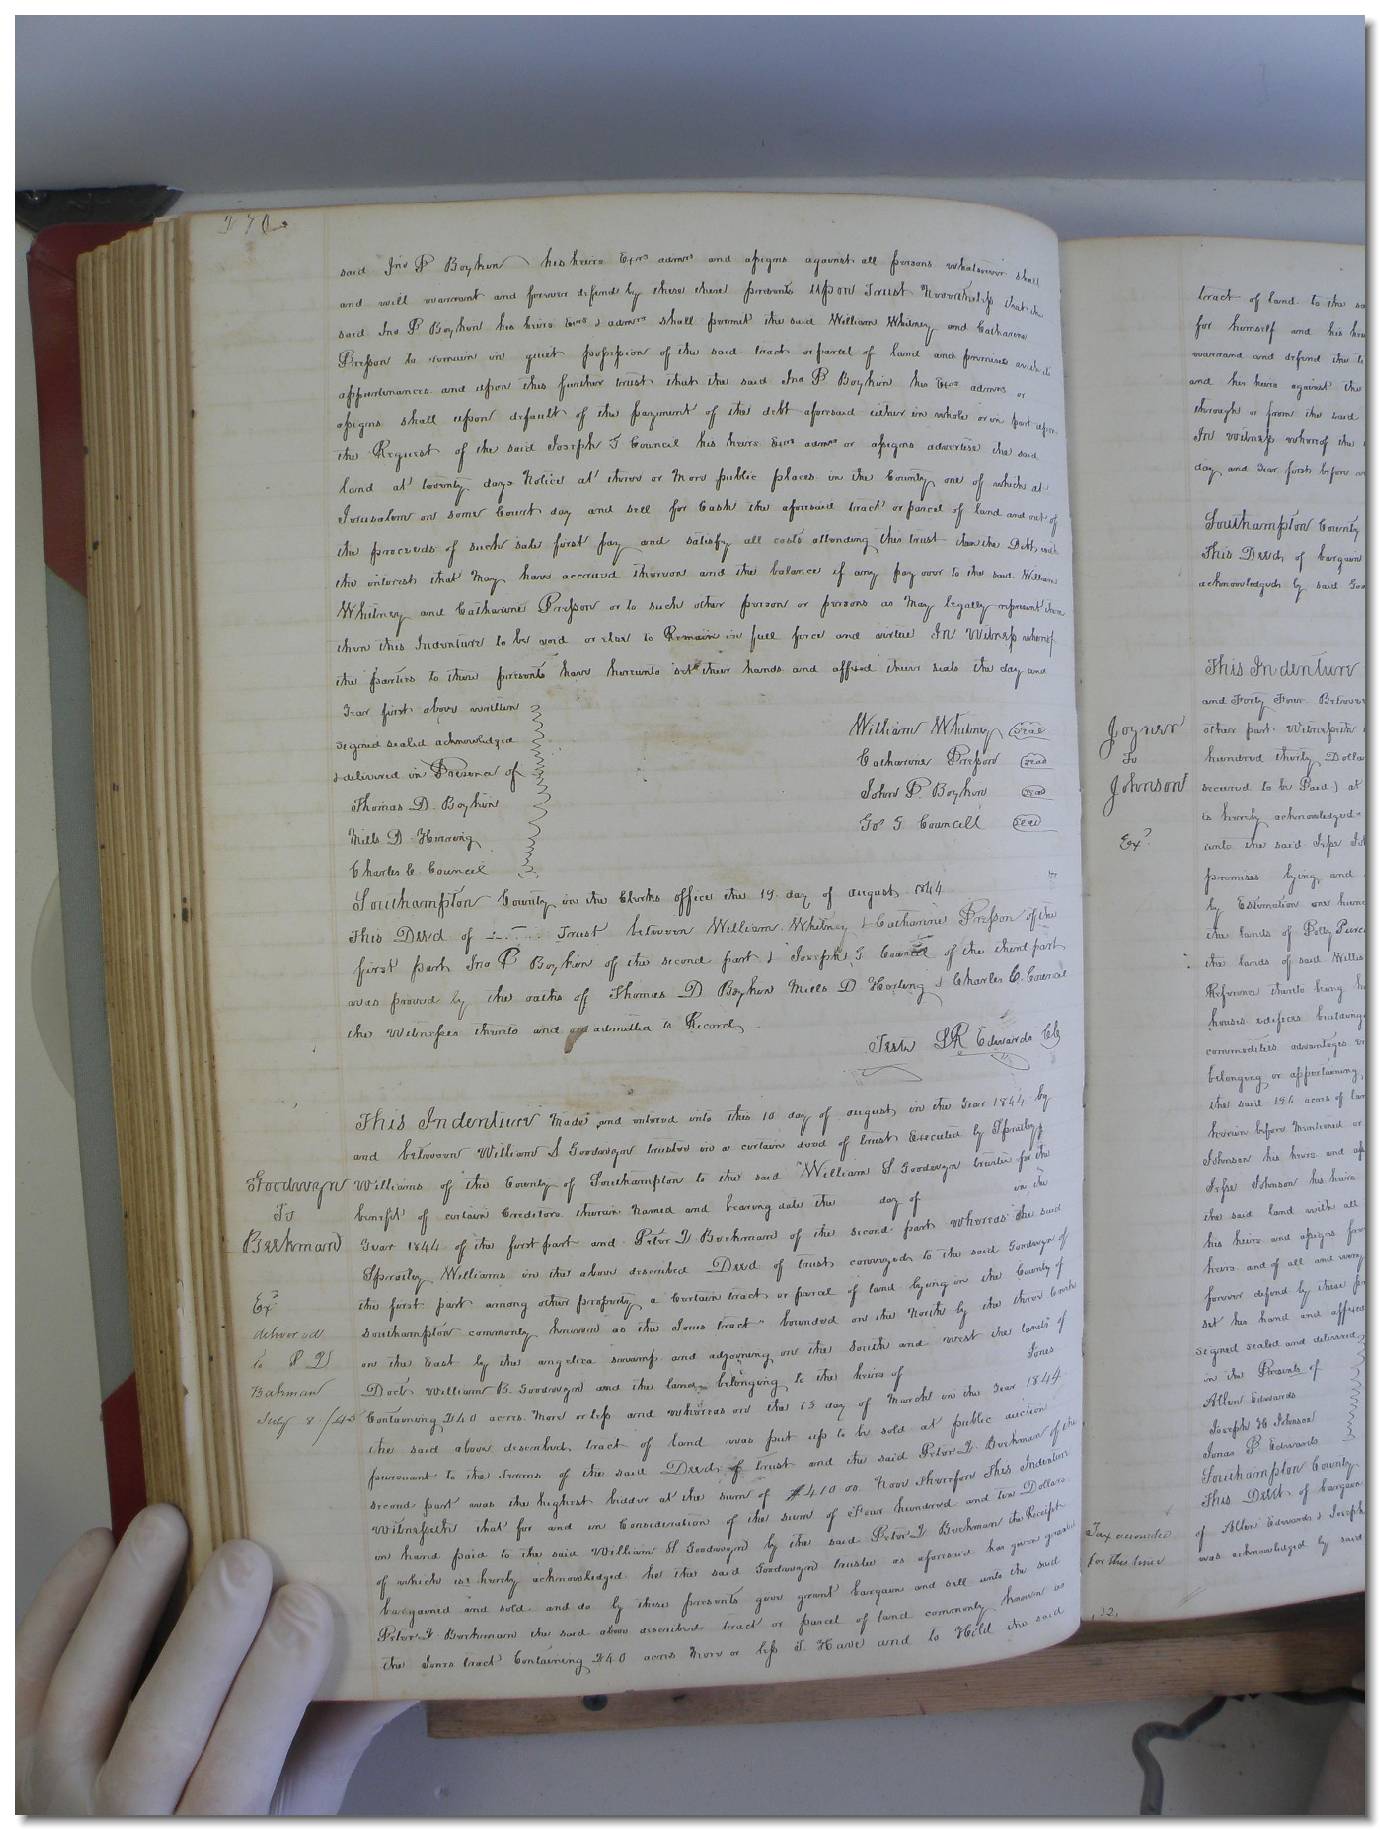 270
said Jno P Boykin his heirs Exrs admrs and assigns against all persons whatsoever shall
and will warrant and forever defend by these these presents Upon Trust Nevertheless that the
said Jno P Boykin his heirs Exrs & admrs shall permit the said William Whitney and Catharine
Presson to remain in quiet possession of the said tract or parcel of land and premises with its
appurtenances and upon this further trust that the said Jno P Boykin his Exrs admrs or
assigns shall upon default of the payment of the debt aforesaid either in whole or in part upon
the Request of the said Joseph G Council his heirs Exrs admrs or assigns advertise the said
land at twenty days Notice at three or More public places in the County one of which at
Jerusalem on some Court day and sell for Cash the aforesaid tract or parcel of land and out of
the proceeds of such sale first pay and satisfy all costs attending this trust then the Debt with
the interest that May have accrued thereon and the balance if any pay over to the said William
Whitney and Catharine Presson or to such other person or persons as May legally represent them
then this Indenture to be void or else to Remain in full force and virtue In Witness whereof
the parties to these presents have hereunto set their hands and affixed their seals the day and
Year first above written
signed sealed acknowledged
& delivered in Presence of
Thomas D. Boykin
Mills D. Herring
Charles C. Council
William Whitney seal
Catharine Presson seal
John P. Boykin seal
Jos G. Councill seal
Southampton County in the Clerks office the 19 day of august 1844
This Deed of Trust between William Whitney & Catharine Presson of the
first part Jno P Boykin of the second part & Joseph G Council of the third part
was proved by the oaths of Thomas D Boykin Mills D Herring & Charles C. Council
the Witnesses thereto and admitted to Record
Teste LR Edwards Clk
This Indenture Made and entered into this 10 day of august in the Year 1844 by
and between William S Goodwyn trustee in a certain deed of trust Executed by Spratley
Goodwyn
To
Beekman
Williams of the County of Southampton to the said William S. Goodwyn trustee for the
benefit of certain Creditors therein Named and bearing date the day of in the
Year 1844 of the first part and Peter D Beekman of the second part whereas the said
Spratley Williams in the above described Deed of trust conveyed to the said Goodwyn of
Ex?
delivered
to P D
Bakman
July 8 /45
the first part among other property a Certain tract or parcel of land lying in the County of
Southampton commonly known as the Jones tract bounded on the North by the three Creeks
on the East by the angelica swamp and adjoining on the South and West the lands of
Doct William B. Goodwyn and the lands belonging to the heirs of Jones
Containing 240 acres More or less and whereas on the 15 day of March in the Year 1844
the said above described tract of land was put up to be sold at public auction
pursuant to the terms of the said Deed of trust and the said Peter D. Beekman of the
second part was the highest bidder at the sum of $410 00 Now Therefore This Indenture
Witnesseth that for and in Consideration of the sum of Four hundred and ten Dollars
in hand paid to the said William S Goodwyn by the said Peter D Beekman the Receipt
of which is hereby acknowledged he the said Goodwyn trustee as aforesaid has given granted
bargained and sold and do by these presents give grant bargain and sell unto the said
Peter D Beekman the said above described tract or parcel of land commonly known as
the Jones tract Containing 240 acres More or less To Have and to Hold the said
tract of land to the
for himself and his
warrand and defend the
and his heirs against the
through or from the said
In Witness whereof the
day and Year first before
Southampton County
This Deed of bargain
acknowledged by said
Joyner
To
Johnson
Ex?
This Indenture
and Forty Four Between
other part Witnesseth
hundred thirty Dolla
secured to be Paid) at
is hereby acknowledged
unto the said
premises lying and
by Estimation one
the lands of Polly
the lands of said Willis
Reference thereto being
houses edifices buildings
commodities advantages
belonging or appertaining
the said 196 acres of
herein before Mentioned or
Johnson his heirs and
Johnson his heirs
the said land with all
his heirs and assigns
heirs and of all and every
forever defend by these
set his hand and affixed
signed sealed and delivered
in the Presents of
Allen Edwards
Joseph H Johnson
Jonas P Edwards
Southampton County
This Deed of bargain
Tax accounted
for this time
of Allen Edwards & Joseph
was acknowledged by said